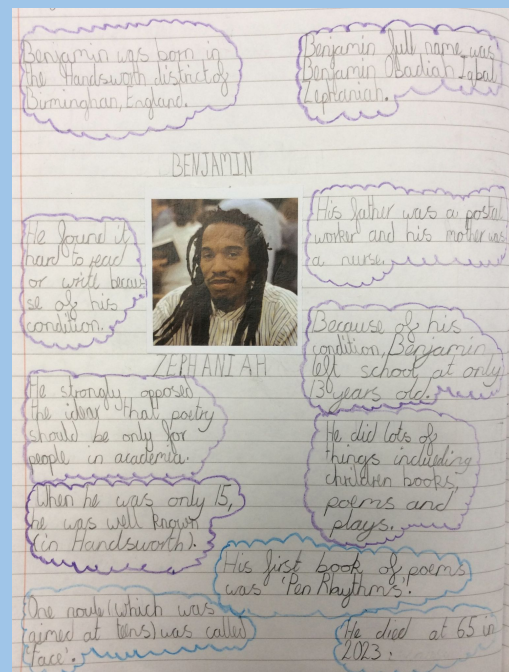 Benjamin was born in
the Handsworth district of
Birmingham, England.
Benjamin full name was
Benjamin Obadiah Iqbal
Zephaniah.
BENJAMIN
His father was a postal
worker and his mother was
a nurse.
He found it
hard to read
or write becau
se of his
condition.
ZEPHANIAH
Because of his
condition, Benjamin
left school at only
13 years old.
He strongly opposed
the idear that poetry
should be only for
people in academia.
He did lots of
things inclueding
children books,
poems and
plays.
When he was only 15,
he was well known
(in Handsworth).
His first book of poems
was 'Pen Rhythms'.
One novle (which was
aimed at teens) was called
'Face'.
He died at 65 in
2023.